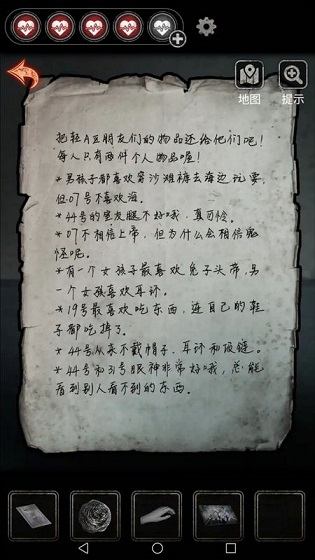 地图
提示
把轻A区朋友们的物品还给他们吧!
每人只有两件个人物品喔!
*男孩子都喜欢穿沙滩裤去海边玩耍,
但07号不喜欢海。
*44号的男友腿不好哦,真可怜。
*07不相信上帝,但为什么会相信鬼
怪呢。
*有一个女孩子最喜欢兔子头带,另
一个女孩喜欢耳环。
*19号最喜欢吃东西,连自己的鞋
子都吃掉了。
*44号从来不戴帽子、耳环和项链。
*44号和31号眼神非常好哦,总能
看到别人看不到的东西。